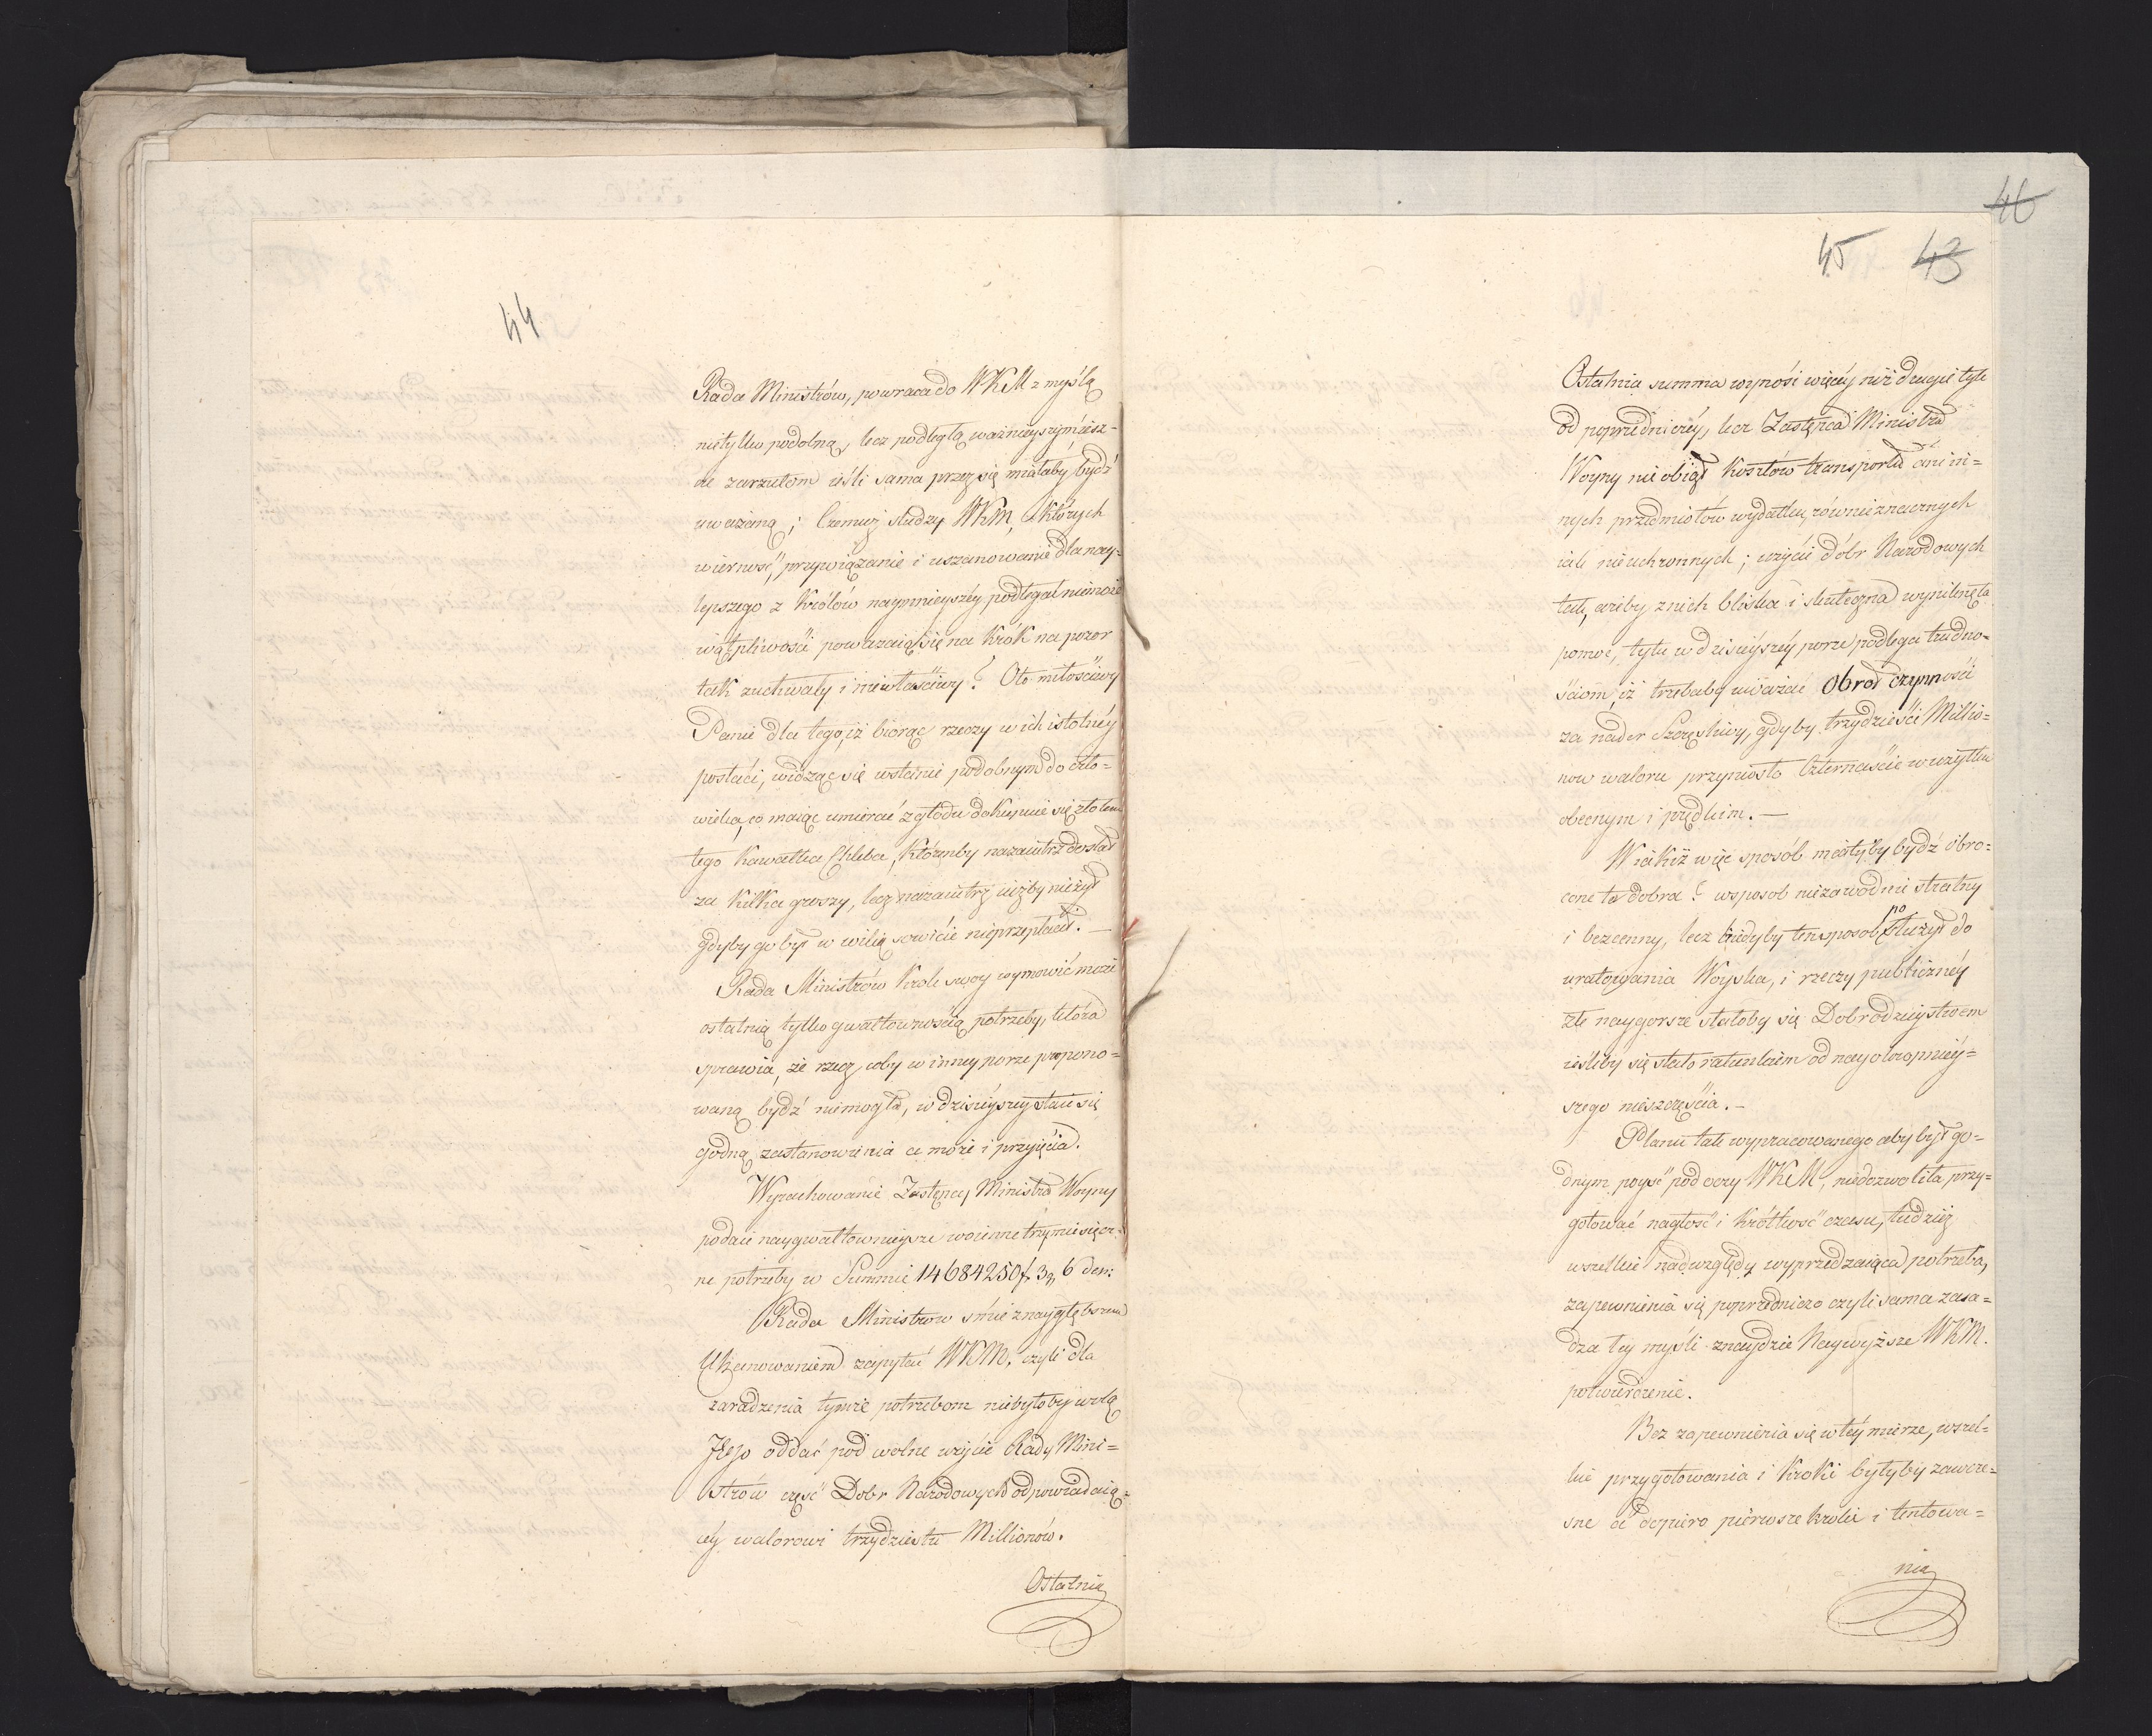 44
Rada Ministrów, powraca do WKM z myślą
nietylko podobną, lecz podległą ważnieyszym ieszcz-
ze zarzutom ieśli sama przez się miałaby bydź
uważaną; Czemuż słudzy WKM, których
wierność, przywiązanie i uszanowanie dla nay-
lepszego z Królów naymnieyszéy podlegać niemoże
wątpliwości poważaią się na krók na pozor
tak zuchwały i niewłaściwy? Oto miłościwy
Panie dla tego, iż biorąc rzeczy w ich istotnéy
postaci, widząc się wstanie podobnym do czło-
wieka, co maiąc umierać z głodu dokupuie się złotem
tego kawałka Chleba, któremby nazaiutrz dostał
za kilka groszy, lecz nazaiutrz iużby nieżył
gdyby go był w wilią sowicie nieprzepłacił. —
Rada Ministrów Krok swoy wymowić może
ostatnią tylko gwałtownością potrzeby, która
sprawia, że rzecz coby w inney porze propono-
waną bydź niemogła, w dzisieyszey staie się
godną zastanowienia a może i przyięcia.
Wyrachowanie Zastępcy Ministra Woyny
podaie naygwałtownieysze woienne trzymiesięcz-
ne potrzeby w Summie 14684250 f. 3 g. 6 den:
Rada Ministrow śmie z naygłębszem
Uszanowaniem zapytać WKM. czyli dla
zaradzenia tymże potrzebom niebyłoby wolą
Jego oddać pod wolne użycie Rady Mini-
strów część Dobr Narodowych odpowiadaią-
céy walorowi trzydziestu Millionów.
Ostatnia
46
45 43
Ostatnia summa wynosi więcéy niż drugie tyle
od poprzedniczéy, lecz Zastępca Ministra
Woyny nie obiął kosztów transportu ani in-
nych przedmiotów wydatku, równie znacznych
iak nieuchronnych; użycie dóbr Narodowych
tak, ażeby z nich bliska i skuteczna wyniknęła
pomoc, tylu w dzisieyszéy porze podlega trudno-
ściom, iż trzebaby uważać Obrot czynności
za nader Szczęśliwy, gdyby trzydzieści Millio-
now waloru przyniosło Czternaście w użytku
obecnym i prędkim. —
W iakiż więc sposób miałyby bydź obro-
cone te dobra? w sposob niezawodnie stratny
i bezcenny, lecz kiedyby ten sposob po służył do
uratowania Woyska, i rzeczy publicznéy
złe naygorsze stałoby się Dobrodzieystwem
ieśliby się stało ratunkiem od nayokropniéy-
szego nieszczęścia. —
Planu tak wypracowanego aby był go-
dnym poyść pod oczy WKM, niedozwoliła przy-
gotować nagłość i krótkość czasu, tudzież
wszelkie nadwzględy wyprzedzaiąca potrzeba,
zapewnienia się poprzedniczo czyli sama zasa-
dza tey myśli znaydzie Naywyższe WKM.
potwierdzenie.
Bez zapewnienia się w téy mierze, wszel-
kie przygotowania i kroki byłyby zawcze-
sne a dopiero pierwsze kroki i tentowa-
nia